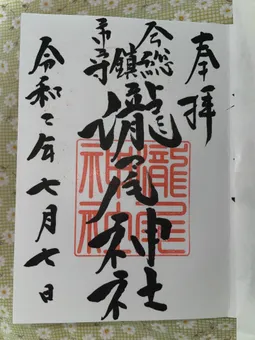 奉拝
今市
総鎮守
瀧尾神社
瀧尾
神社
令和二年七月七日